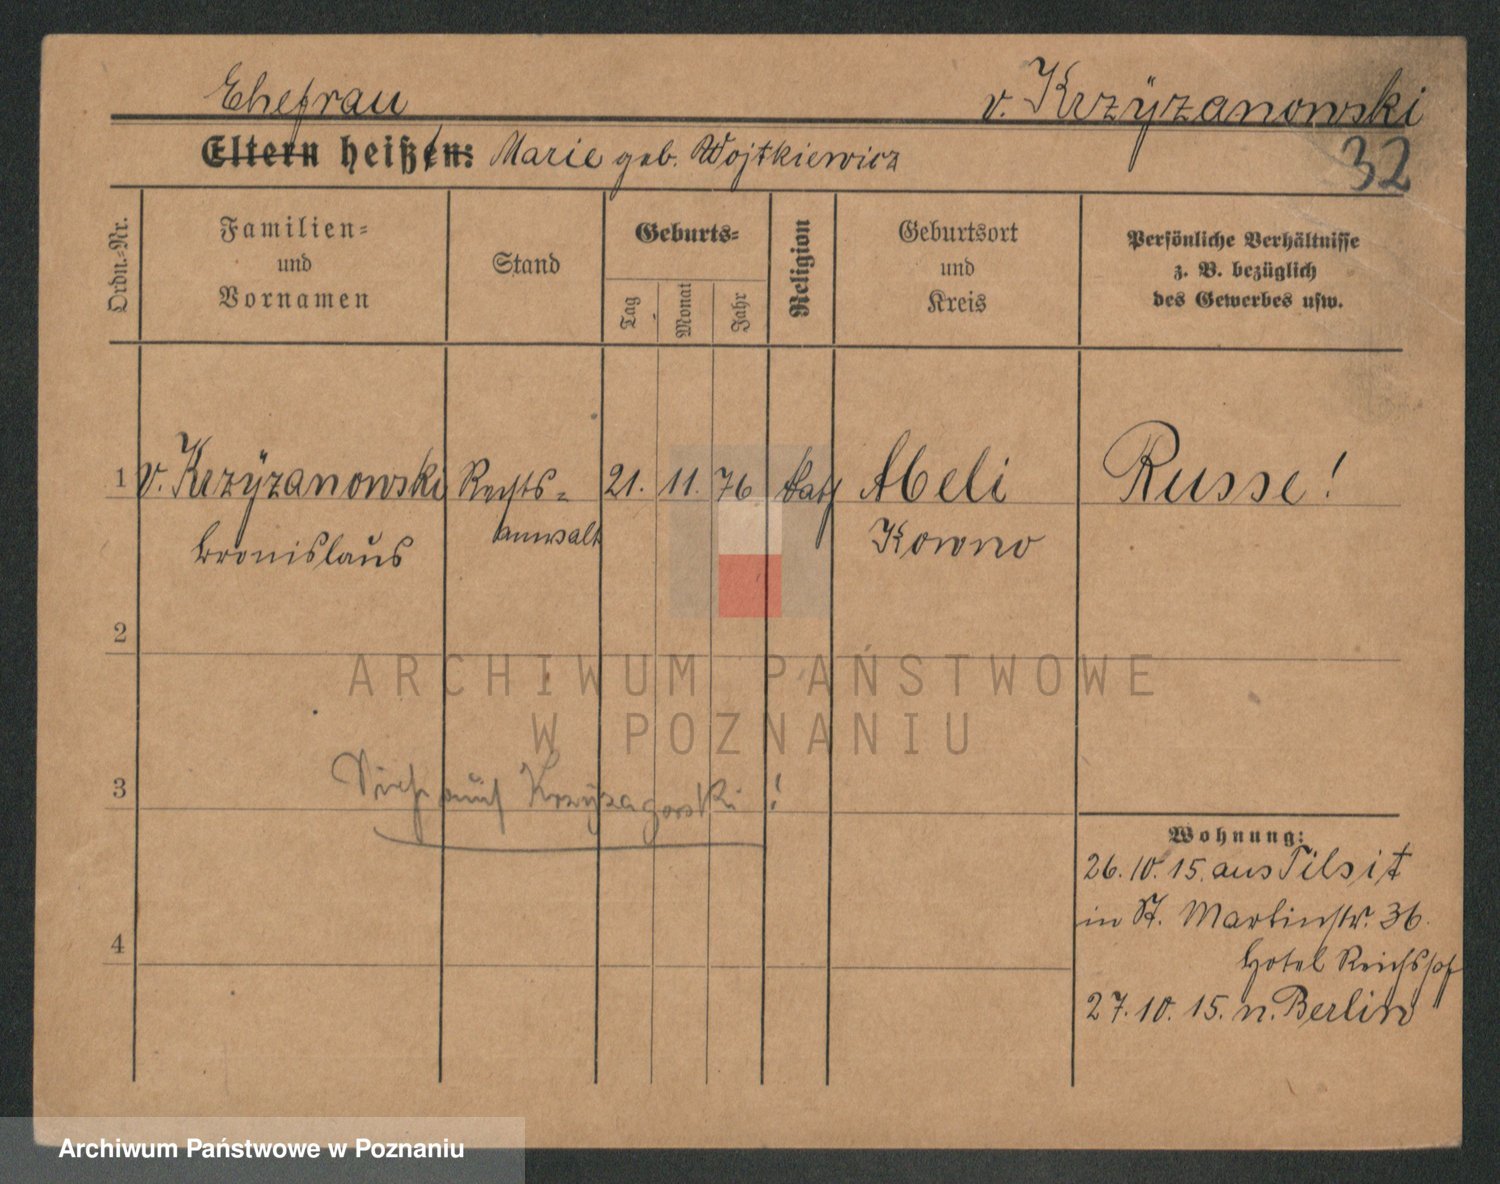 Ehefrau v. Krzÿzanowski
Eltern heißen: Marie geb. Wojtkiewicz
32
Ordn.-Nr.
Familien-
und
Vornamen
Stand
Geburts-
Tag
Monat
Jahr
Religion
Geburtsort
und
Kreis
Persönliche Verhältnisse
z. B. bezüglich
des Gewerbes usw.
1 v. Krzÿzanowski Rechts- 21. 11. 76 kath Abeli Russe!
Bronislaus anwalt Kowno
2
ARCHIWUM PAŃSTWOWE
W POZNANIU
3 Siehe auch Krzyzagorski!
Wohnung:
26.10.15. aus Tilsit
in St. Martinstr. 36.
Hotel Reichshof
27.10.15. n. Berlin
4
Archiwum Państwowe w Poznaniu